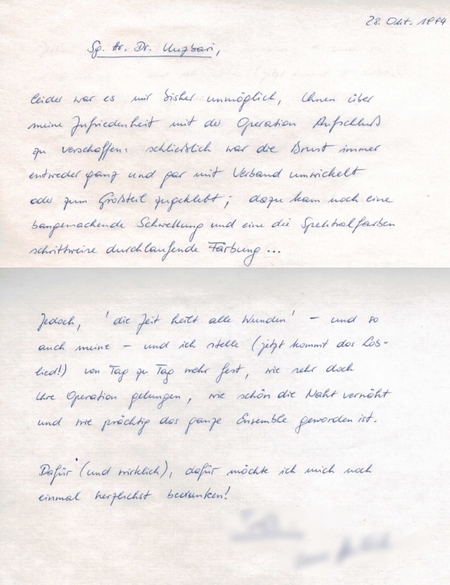 28. Okt. 1994
Sg. Hr. Dr. Ungbari,
leider war es mir bisher unmöglich, Ihnen über
meine Zufriedenheit mit der Operation Aufschluß
zu verschaffen: schließlich war die Brust immer
entweder ganz und gar mit Verband umwickelt
oder zum Großteil zugeklebt; dazu kam noch eine
bangemachende Schwellung und eine die Spektralfarben
schrittweise durchlaufende Färbung...
Jedoch, 'die Zeit heilt alle Wunden' – und so
auch meine – und ich stelle (jetzt kommt das Lob-
lied!) von Tag zu Tag mehr fest, wie sehr doch
Ihre Operation gelungen, wie schön die Naht vernäht
und wie prächtig das ganze Ensemble geworden ist.
Dafür (und wirklich), dafür möchte ich mich noch
einmal herzlichst bedanken!